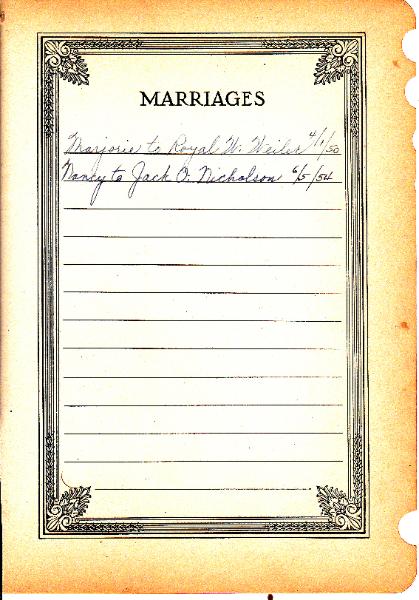 MARRIAGES
Marjorie to Royal W. Weiler 4/1/50
Nancy to Jack O. Nicholson 6/5/54